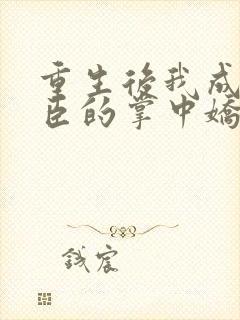 重生後我成
臣的掌中嬌
宸